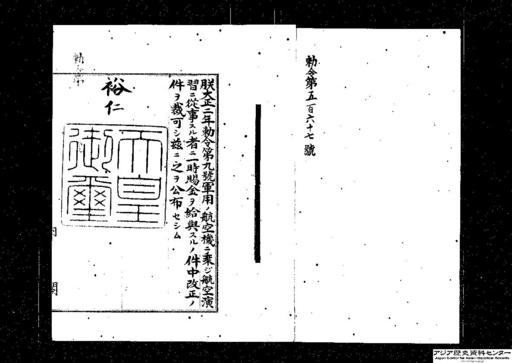 勅令第五百六十七號
朕大正二年勅令第九號軍用ノ航空機ニ乘ジ航空演
習ニ從事スル者ニ一時賜金ヲ給與スルノ件中改正ノ
件ヲ裁可シ茲ニ之ヲ公布セシム
裕仁
天皇
御璽
内閣
アジア歴史資料センター
Japan Center for Asian Historical Records